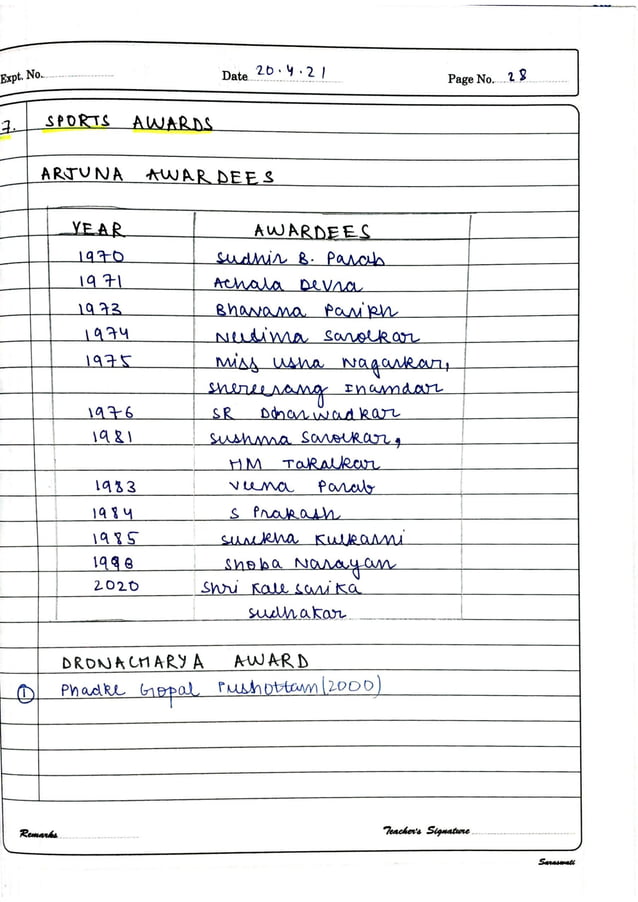 Expt. No. Date 20.4.21 Page No. 28
7. SPORTS AWARDS
ARJUNA AWARDEES
YEAR AWARDEES
1970 Sudhir B. Parab
1971 Achala Devra
1973 Bhavana Parikh
1974 Neelima Sarolkar
1975 Miss Usha Nagarkar,
Shereerang Inamdar
1976 SR Dharwadkar
1981 Sushma Sarolkar,
HM Takalkar
1983 Veena Parab
1984 S Prakash
1985 Surekha Kulkarni
1998 Shoba Narayan
2020 Shri Kale Sarika
Sudhakar
DRONACHARYA AWARD
① Phadke Gopal Pushottam (2000)
Remarks Teacher's Signature
Saraswati